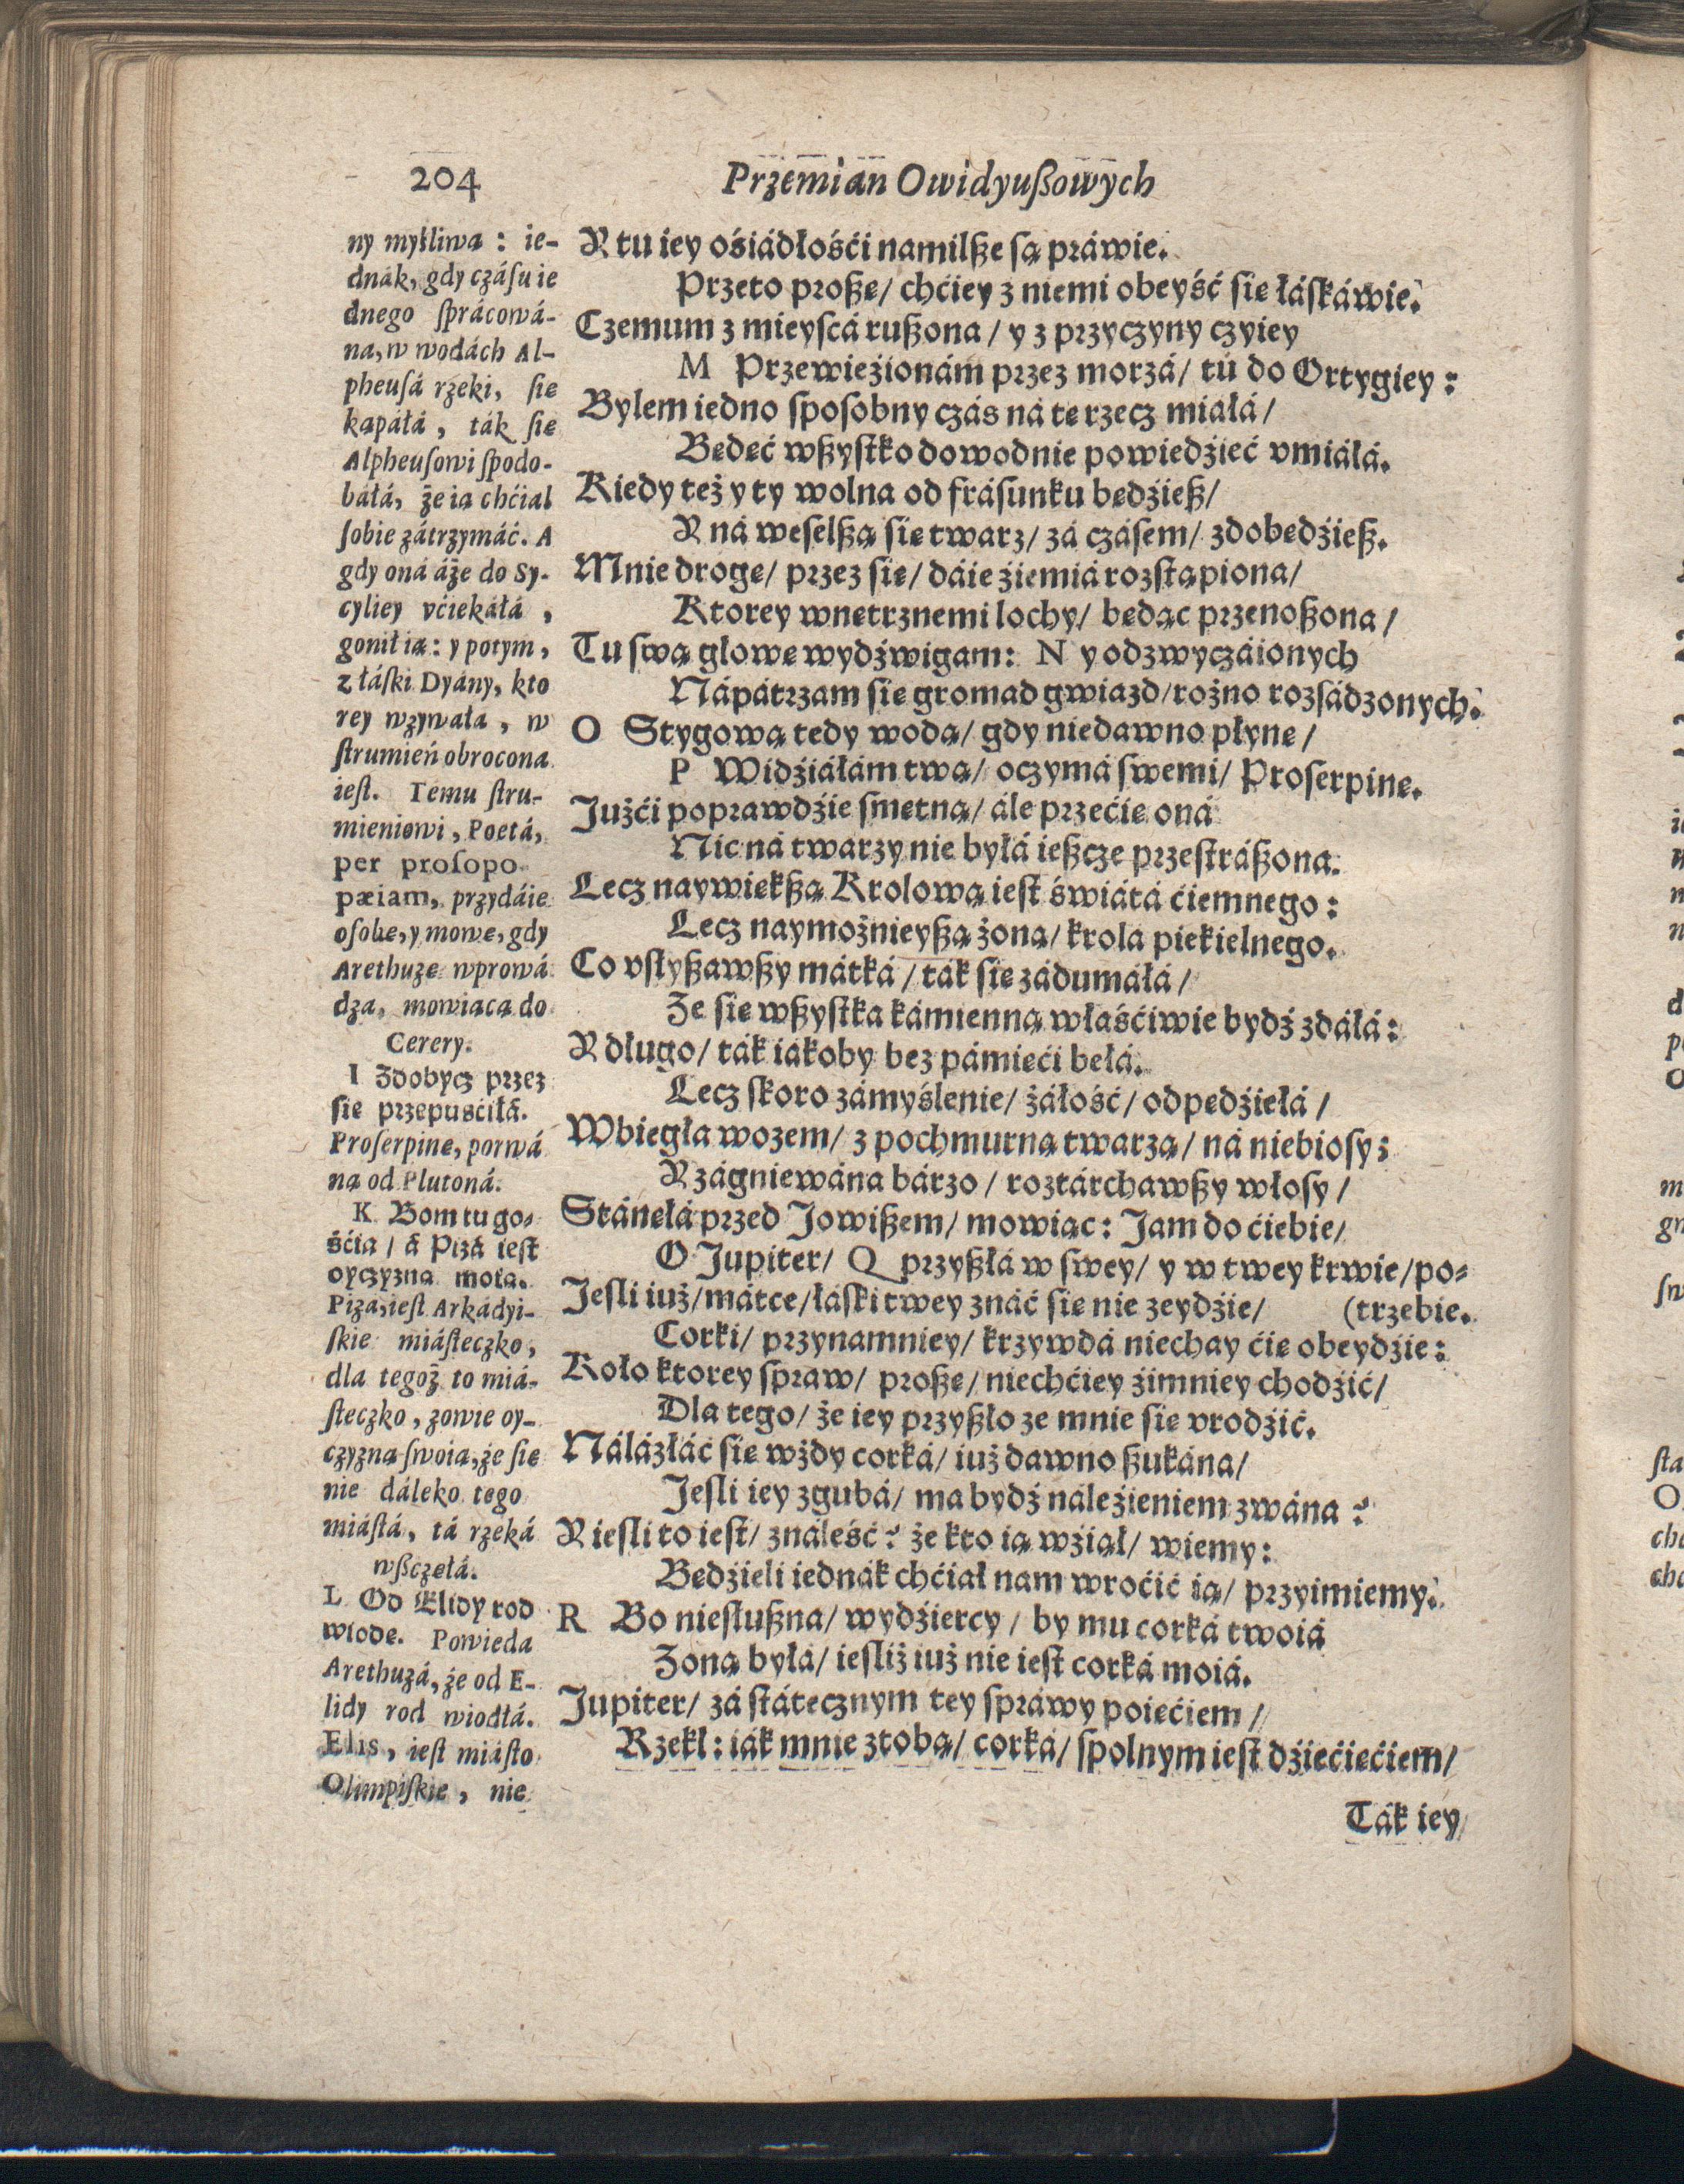 204
Przemian Owidyußowych
ny myśliwa : ie-
dnák, gdy czáſu ie
dnego ſprácowá-
na, w wodách Al-
pheuſá rzeki, ſie
kąpáłá, ták ſie
Alpheuſowi ſpodo-
báłá, że ią chćiał
ſobie zátrzymáć. A
gdy oná áże do Sy-
cyliey vćiekáłá,
gonił ią: y potym,
z łáſki Dyány, kto
rey wzywałá, w
ſtrumień obrocona
ieſt. Temu ſtru-
mieniowi, Poetá,
per proſopo
pæiam, przydáie
oſobę, y mowę, gdy
Arethuzę wprowá
dza, mowiącą do
Cerery.
I Zdobycz przez
ſię przepuśćiłá.
Proſerpinę, porwá
ną od Plutoná.
K Bom tu go-
śćią / á Pizá ieſt
oyczyzną moią.
Piza, ieſt Arkádyi-
ſkie miáſteczko,
dla tegoż to miá-
ſteczko, zowie oy-
czyzną ſwoią, że ſie
nie dáleko tego
miáſtá, tá rzeká
wßczęłá.
L Od Elidy rod
wiodę. Powieda
Arethuzá, że od E-
lidy rod wiodłá.
Elis, ieſt miáſto
Olimpiſkie, nie
Y tu iey ośiádłośći namilße ſą práwie.
Przeto proßę/ chćiey z niemi obeyść ſie łáſkáwie.
Czemum z mieyſcá rußona / y z przyczyny czyiey
M Przewieźionám przez morzá/ tu do Ortygiey:
Bylem iedno ſpoſobny czás ná tę rzecz miáłá/
Będęć wßyſtko dowodnie powiedźieć vmiáłá.
Kiedy też y ty wolna od fráſunku będźieß/
Y ná weſelßą ſię twarz/ zá czáſem/ zdobędźieß.
Mnie drogę/ przez ſię/ dáie źiemiá rozſtąpiona/
Ktorey wnętrznemi lochy/ będąc przenoßona/
Tu ſwą głowę wydźwigam: N y odzwyczáionych
Nápátrzam ſię gromad gwiazd/ rożno rozſádzonych.
O Stygową tedy wodą/ gdy niedawno płynę/
P Widźiáłám twą/ oczymá ſwemi/ Proſerpinę.
Jużći poprawdźie ſmętną/ ále przećię oná
Nic ná twarzy nie byłá ießcze przeſtráßona.
Lecz naywiękßą Krolową ieſt świátá ćiemnego:
Lecz naymożnieyßą żoną/ krolá piekielnego.
Co vſłyßawßy mátká / ták ſię zádumáłá/
Że ſię wßyſtka kámienną właśćiwie bydź zdáłá:
Y długo/ ták iákoby bez pámięći bełá.
Lecz ſkoro zámyślenie/ żáłość/ odpędźiełá /
Wbiegłá wozem/ z pochmurną twarzą/ ná niebioſy;
Y zágniewána bárzo / roztárchawßy włoſy /
Stánęłá przed Jowißem/ mowiąc: Jam do ćiebie/
O Jupiter/ Q przyßłá w ſwey/ y w twey krwie/po-
Jeſli iuż/ mátce/ łáſki twey znáć ſię nie zeydźie/ (trzebie.
Corki/ przynamniey/ krzywdá niechay ćię obeydźie:
Koło ktorey ſpraw/ proßę/ niechćiey źimniey chodźić/
Dla tego/ że iey przyßło ze mnie ſię vrodźić.
Nálázłáć ſię wżdy corká/ iuż dawno ßukána/
Jeſli iey zgubá/ ma bydź náleźieniem zwána?
Y ieſli to ieſt/ ználeść? że kto ią wźiął/ wiemy:
Będźieli iednák chćiał nam wroćić ią/ przyimiemy.
R Bo niesłußna/ wydźiercy / by mu corká twoiá
Zoną byłá/ ieſliż iuż nie ieſt corká moiá.
Jupiter/ zá ſtátecznym tey ſpráwy poięćiem /
Rzekł: iák mnie z tobą/ corká/ ſpolnym ieſt dźiećięćiem/
Ták iey